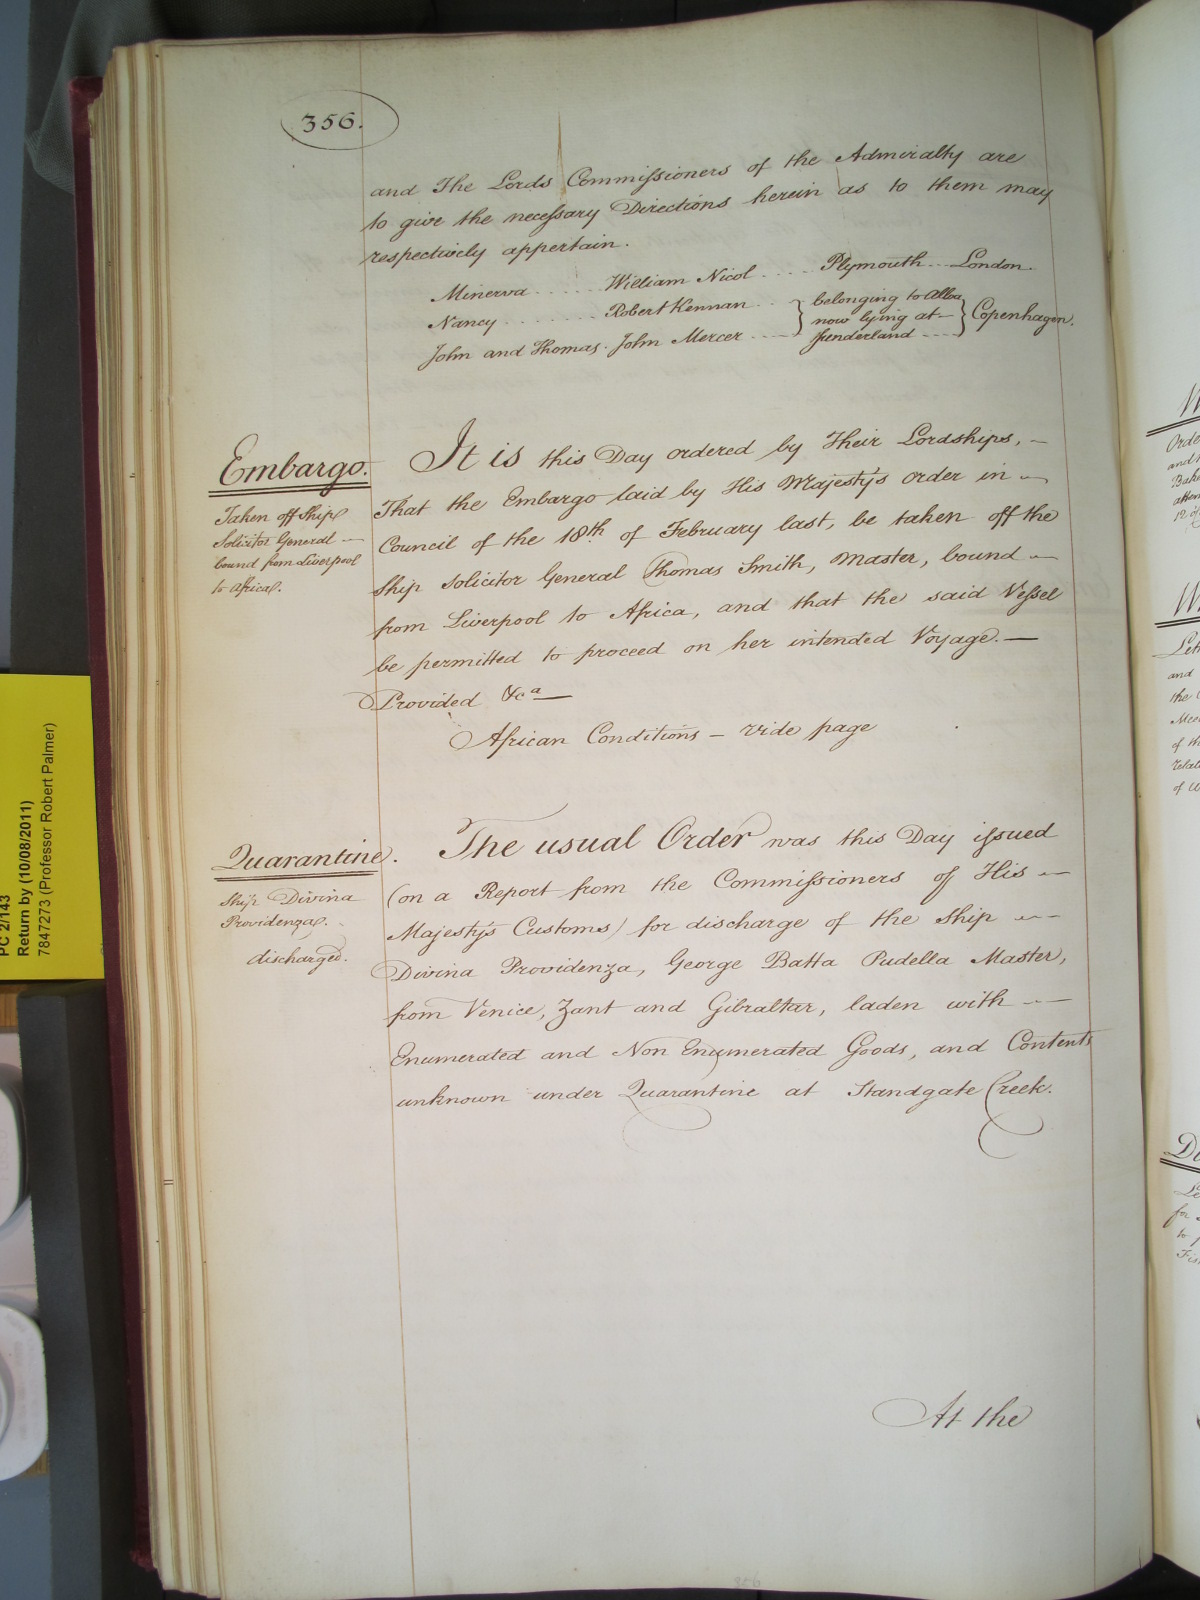 356.
and The Lords Commissioners of the Admiralty are
to give the necessary Directions herein as to them may
respectively appertain.
Minerva ..... William Nicol .... Plymouth ... London.
Nancy ........ Robert Kennan ... } belonging to Alloa
now lying at — } Copenhagen.
John and Thomas. John Mercer .... Sunderland ....
Embargo.
Taken off Ship
Solicitor General —
bound from Liverpool
to Africa.
It is this Day ordered by Their Lordships, —
That the Embargo laid by His Majesty's order in —
Council of the 18th of February last, be taken off the
Ship Solicitor General Thomas Smith, Master, bound —
from Liverpool to Africa, and that the said Vessel
be permitted to proceed on her intended Voyage. —
Provided &ca —
African Conditions — vide page
Quarantine.
Ship Divina
Providenza.
discharged.
The usual Order was this Day issued
(on a Report from the Commissioners of His —
Majesty's Customs) for discharge of the Ship —
Divina Providenza, George Batta Pudella Master,
from Venice, Zant and Gibraltar, laden with —
Enumerated and Non Enumerated Goods, and Contents
unknown under Quarantine at Standgate Creek.
At the
356
PC 2/143
Return by (10/08/2011)
7847273 (Professor Robert Palmer)